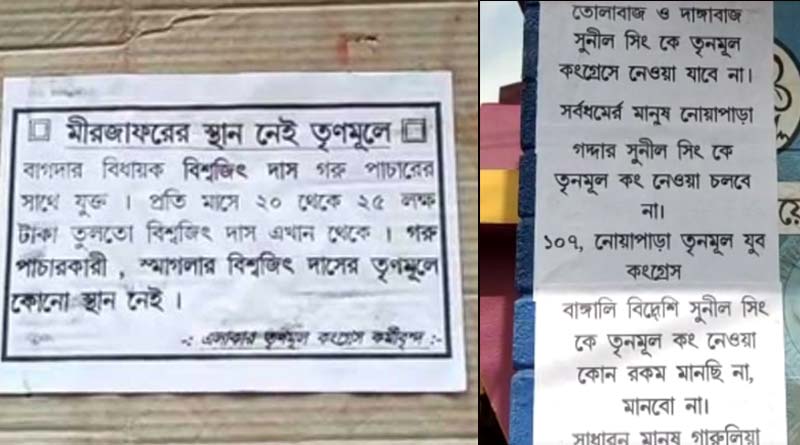 মীরজাফরের স্থান নেই তৃণমূলে
বাগদার বিধায়ক বিশ্বজিৎ দাস গরু পাচারের
সাথে যুক্ত । প্রতি মাসে ২০ থেকে ২৫ লক্ষ
টাকা তুলতো বিশ্বজিৎ দাস এখান থেকে । গরু
পাচারকারী , স্মাগলার বিশ্বজিৎ দাসের তৃণমূলে
কোনো স্থান নেই ।
-: এলাকার তৃণমূল কংগ্রেস কর্মীবৃন্দ :-
তোলাবাজ ও দাঙ্গাবাজ
সুনীল সিং কে তৃনমূল
কংগ্রেসে নেওয়া যাবে না।
সর্বধমের্র মানুষ নোয়াপাড়া
গদ্দার সুনীল সিং কে
তৃনমূল কং নেওয়া চলবে
না।
১০৭, নোয়াপাড়া তৃনমূল যুব
কংগ্রেস
বাঙ্গালি বিদ্বেশি সুনীল সিং
কে তৃনমূল কং নেওয়া
কোন রকম মানছি না,
মানবো না।
সাধারন মানুষ গারুলিয়া